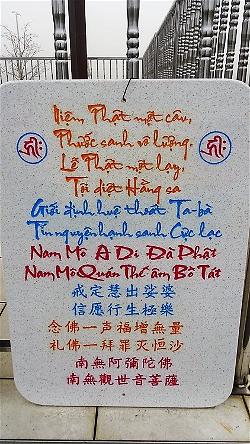 Niệm Phật một câu,
Phước sanh vô lượng.
Lễ Phật một lạy,
Tội diệt Hằng sa
Giới định huệ thoát Ta-bà
Tín nguyện hạnh sanh Cực lạc
Nam Mô A Di Đà Phật
Nam Mô Quán Thế Âm Bồ Tát
戒定慧出娑婆
信愿行生極樂
念佛一声福增無量
礼佛一拜罪灭恒沙
南無阿彌陀佛
南無觀世音菩薩